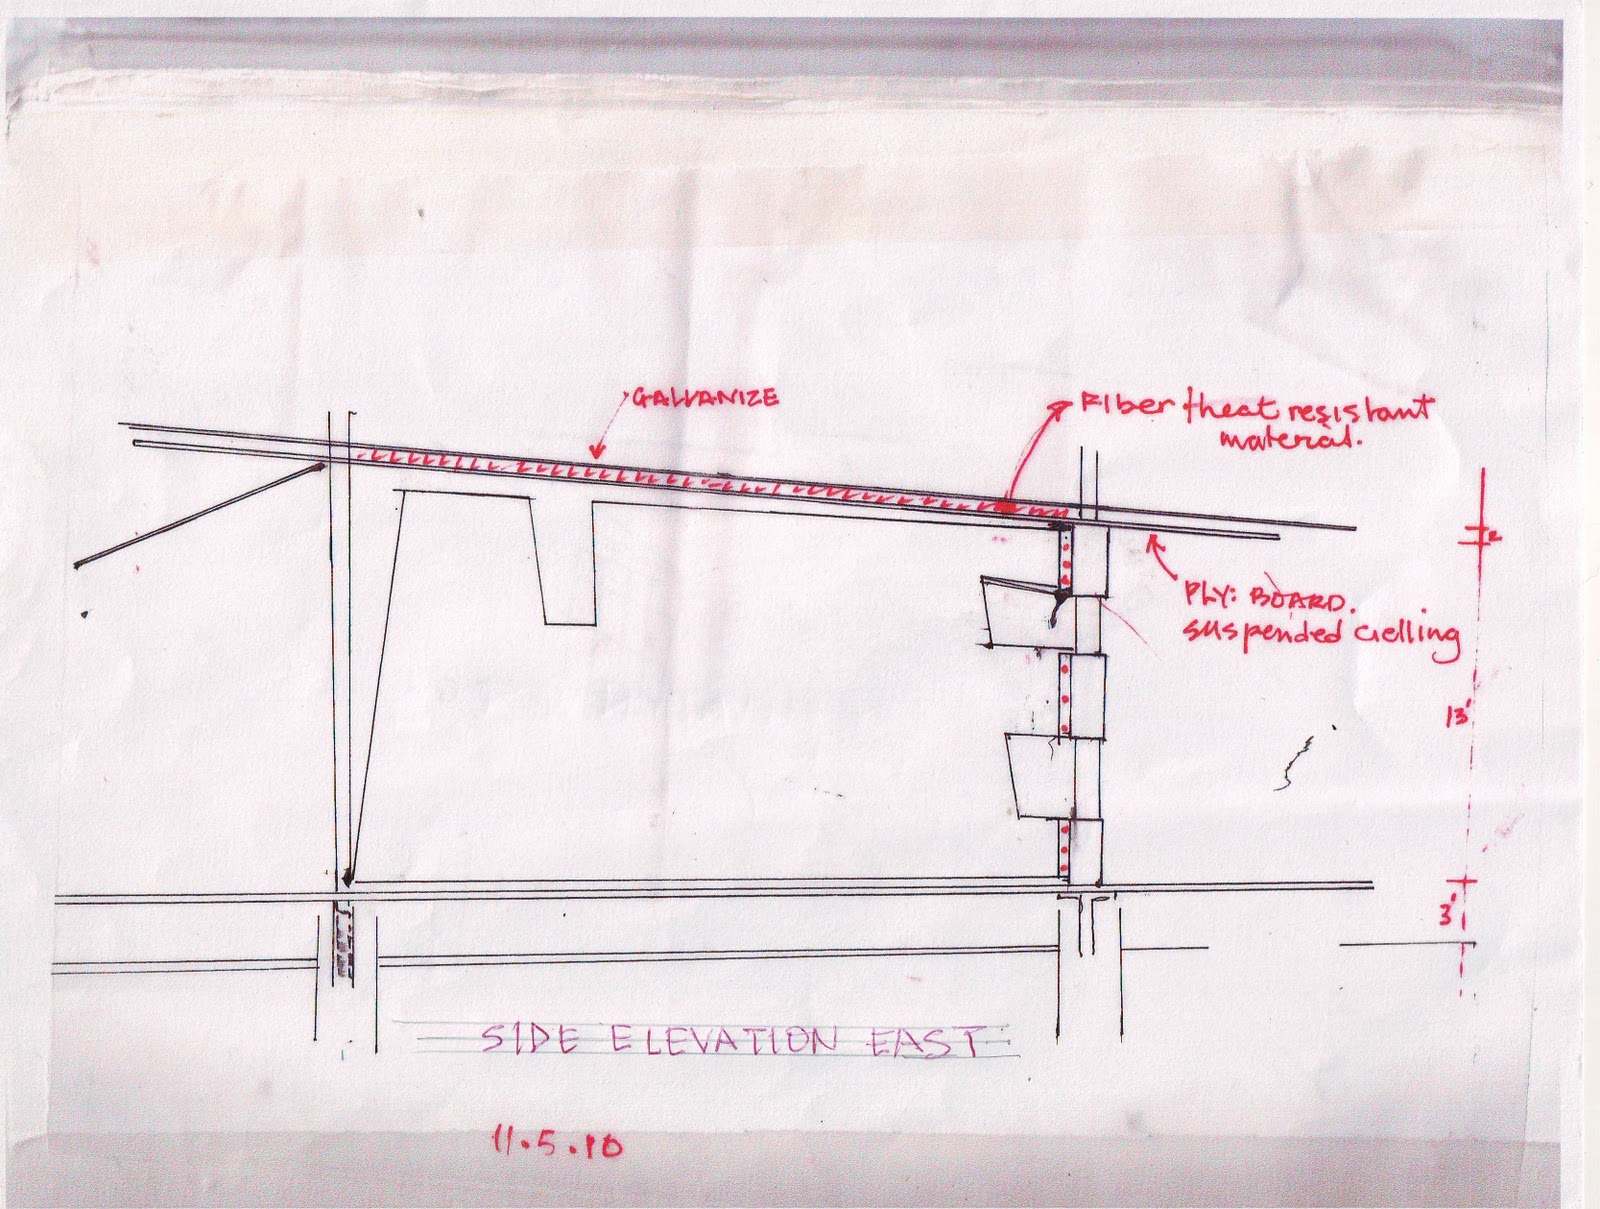 GALVANIZE
Fiber + heat resistant
material.
2
PLY: BOARD.
suspended cielling
13'
3'
SIDE ELEVATION EAST
11.5.10